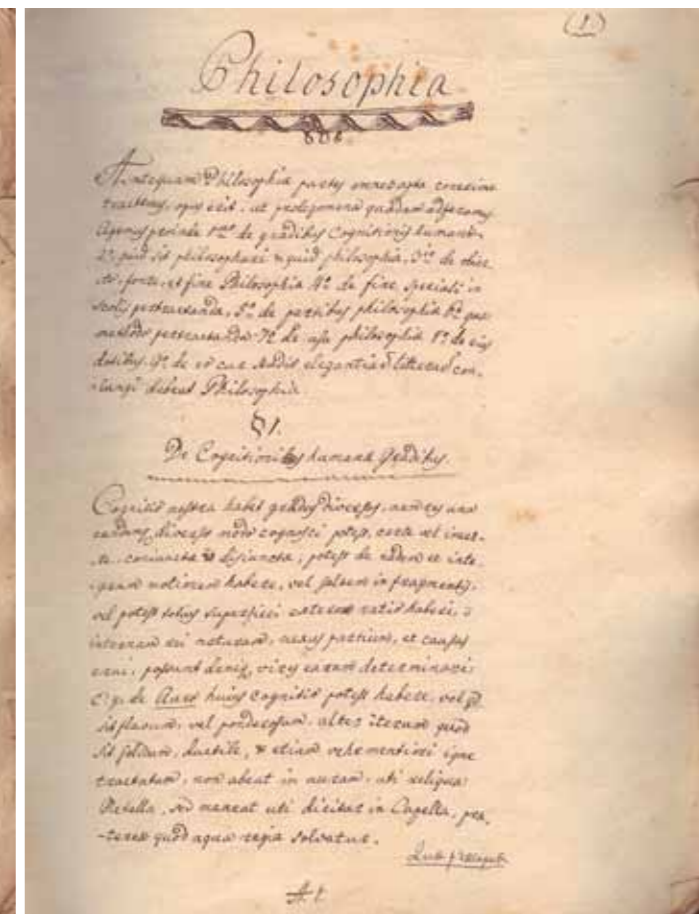 (1.)
Philosophia
Antequam Philosophiæ partes
tractemus, opus erit, ut prolegomena quædam adferamus
Agemus proinde 1mo de gradibus Cognitionis humanæ,
2o quid sit philosophari & quid philosophia, 3tio de objec-
to, fonte, et fine Philosophiæ 4o de fine speciali in
scolis pertractanda, 5o de partibus philosophiæ 6o qua
methodo pertractanda 7o de usu philosophiæ 8o de eius
dotibus, 9o de eo cur studiis elegantiorum litterarum con-
iungi debeat Philosophia
§1.
De Cognitionibus humanæ Gradibus.
Cognitio nostra habet gradus diversos, nam res una
eandemq diverso modo cognosci potest, certe vel incer-
te, coniuncta & disjuncta, potest de eadem re inte-
gram notionem habere, vel saltem in fragmentis,
vel potest solius superficiei externæ ratio haberi,
internam rei naturam, nexus partium, et causas
erui, possunt deniq vires earum determinari.
e: g. de Auro huius cognitio potest habere, vel qd
sit flavum, vel ponderosum, alter iterum quod
sit solidum, ductile, & etiam vehementiori igne
tractatum, non abeat in auram, uti reliqua
Metalla, sed maneat uti dicitur in Capella, præ-
-terea quod aqua regia solvatur.
A 1